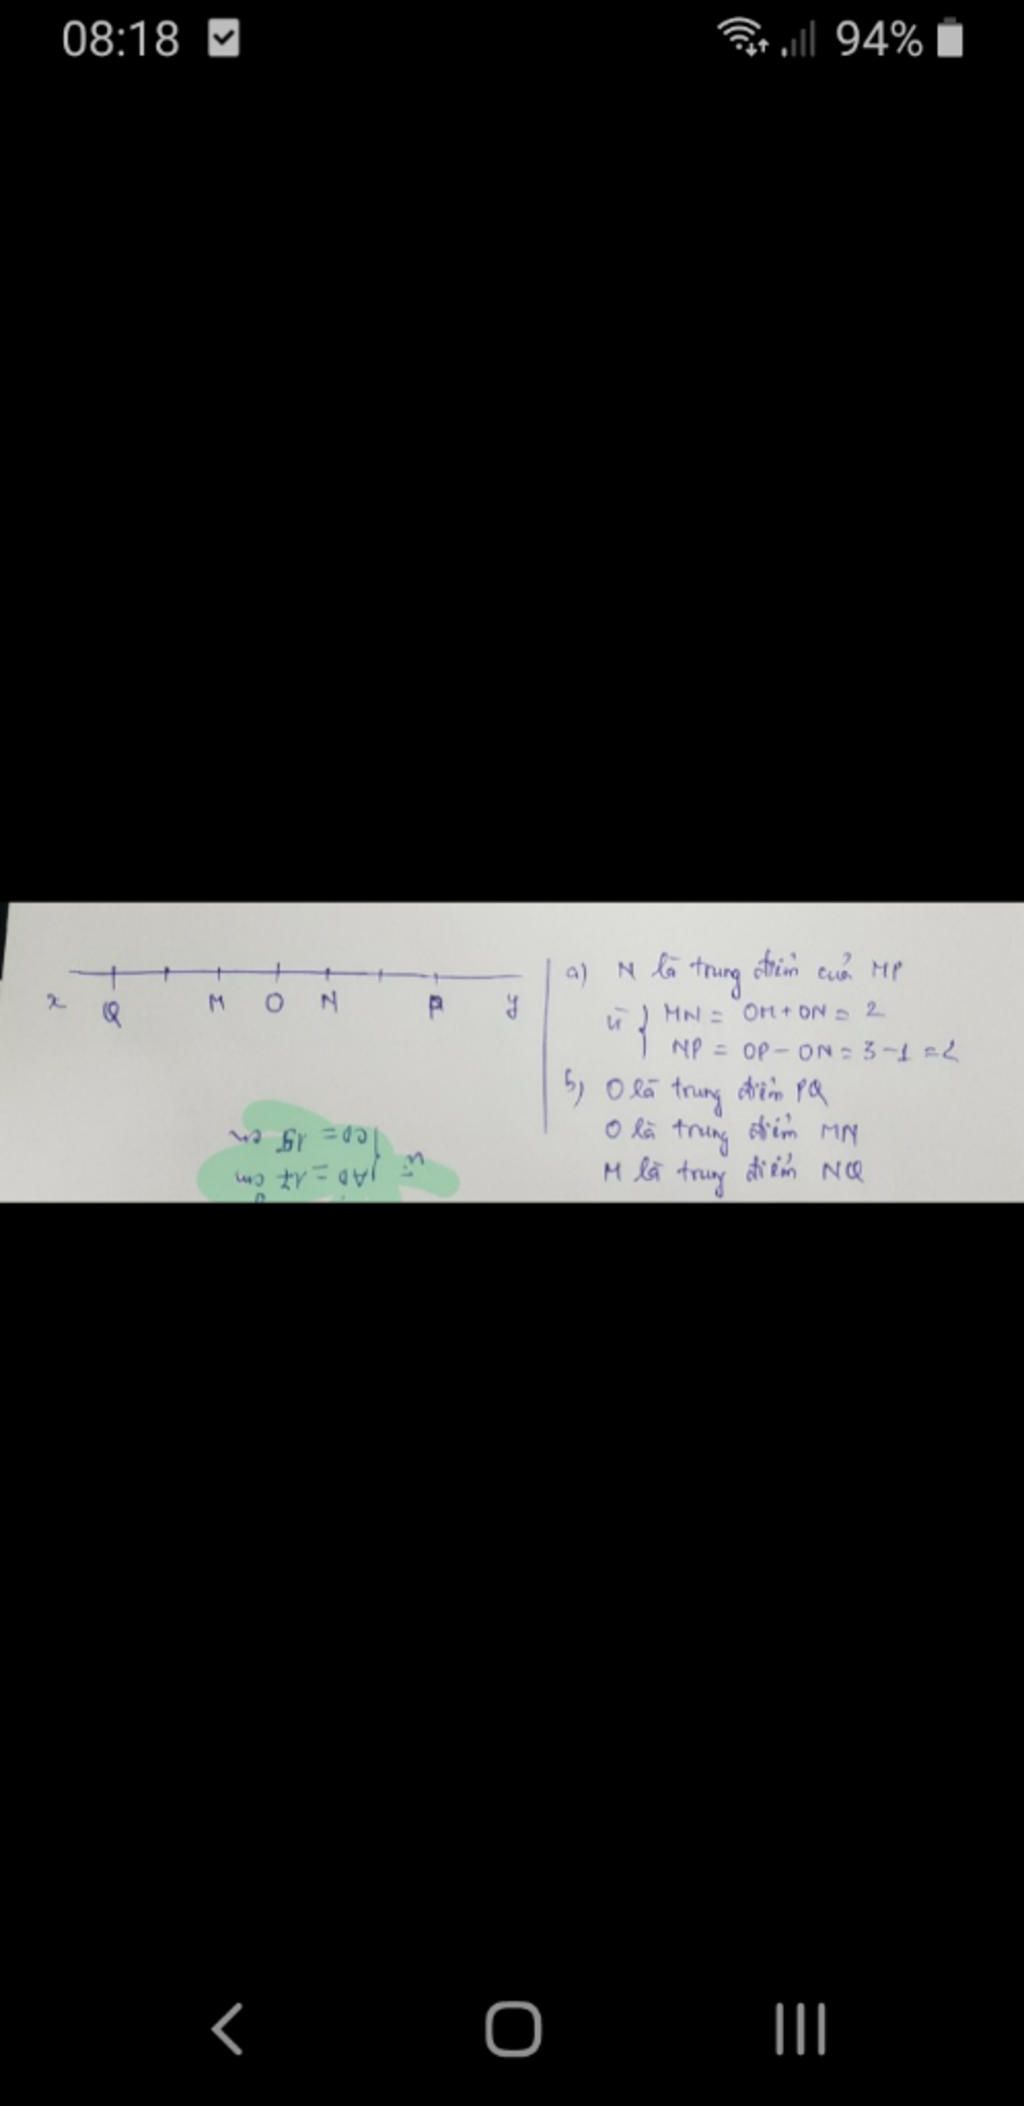 08:18
94%
x Q M O N P y
a) N là trung điểm của MP
vì { MN = OM + ON = 2
NP = OP - ON = 3 - 1 = 2
b) O là trung điểm PQ
O là trung điểm MN
M là trung điểm NQ
vì { AD = 17 cm
CD = 15 cm